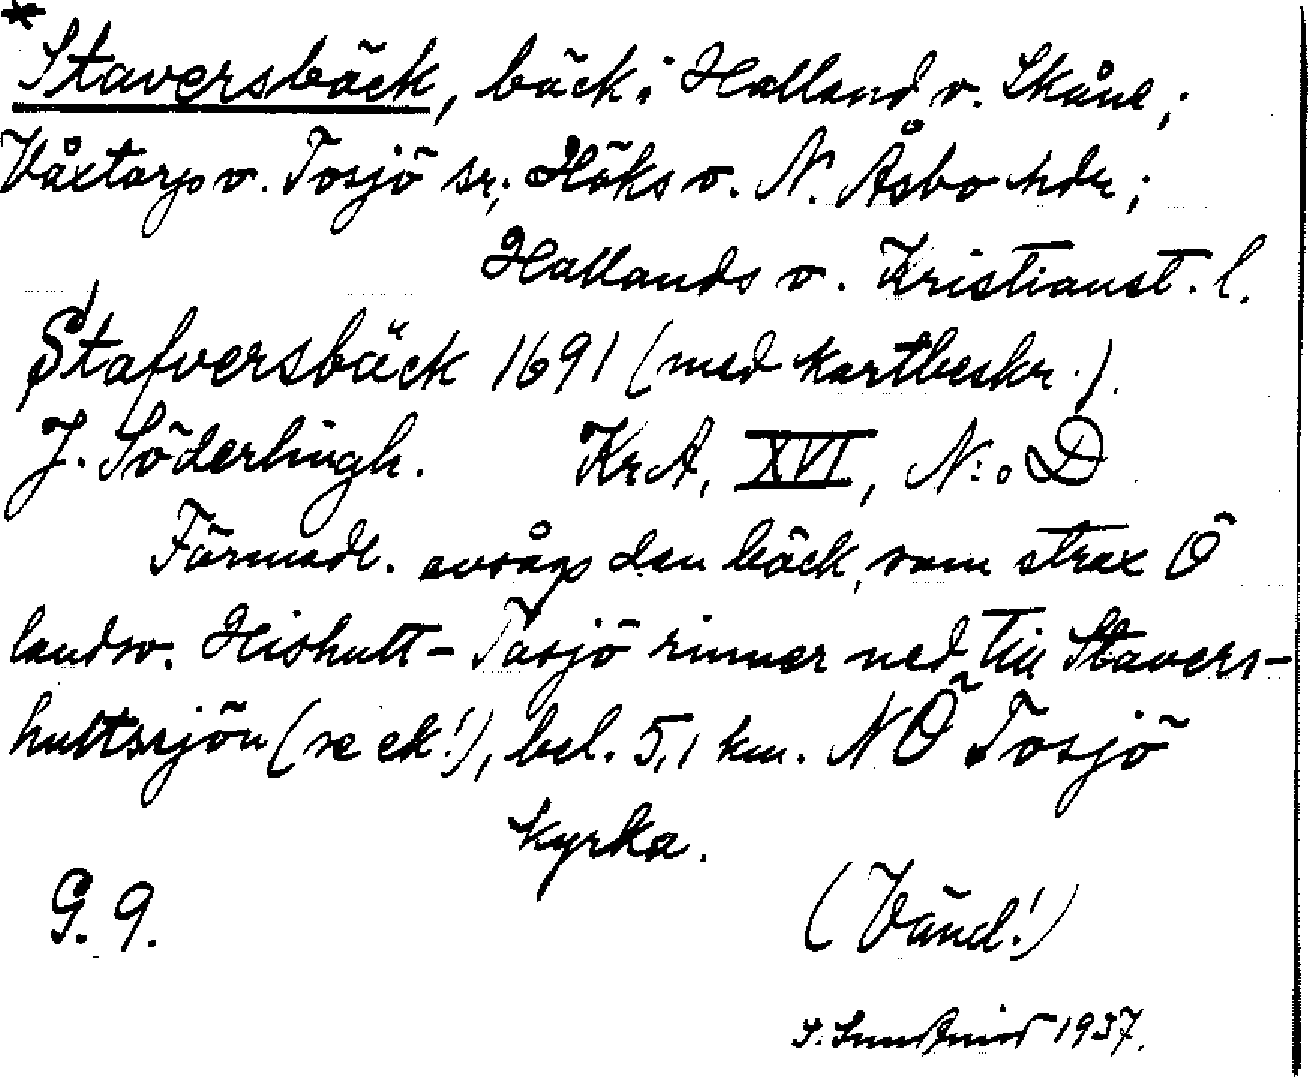 *
Staversbäck, bäck i Halland o. Skåne;
Våxtorp o. Tosjö sr; Höks o. N. Åsbo hdr;
Hallands o. Kristianst. l.
Stafversbäck 1691 (med kartbeskr.).
J. Söderlingh. KrA, XVI, N:o D
Förmodl. avsågs den bäck, som strax Ö
landsv. Hishult-Tosjö rinner ned till Stavers-
hultssjön (se ek!), bel. 5,1 km. NÖ Tosjö
kyrka.
G. 9. (Vänd!)
1937.